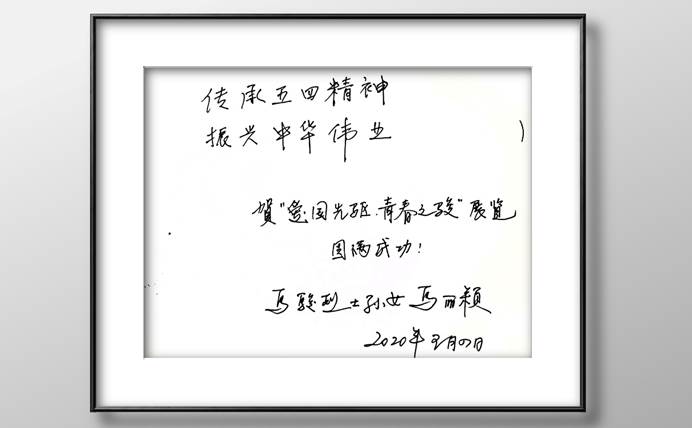 传承五四精神
振兴中华伟业
賀“爱国先驱·青春之骏”展览
圆满成功！
马骏烈士孙女马丽颖
2020年五月四日